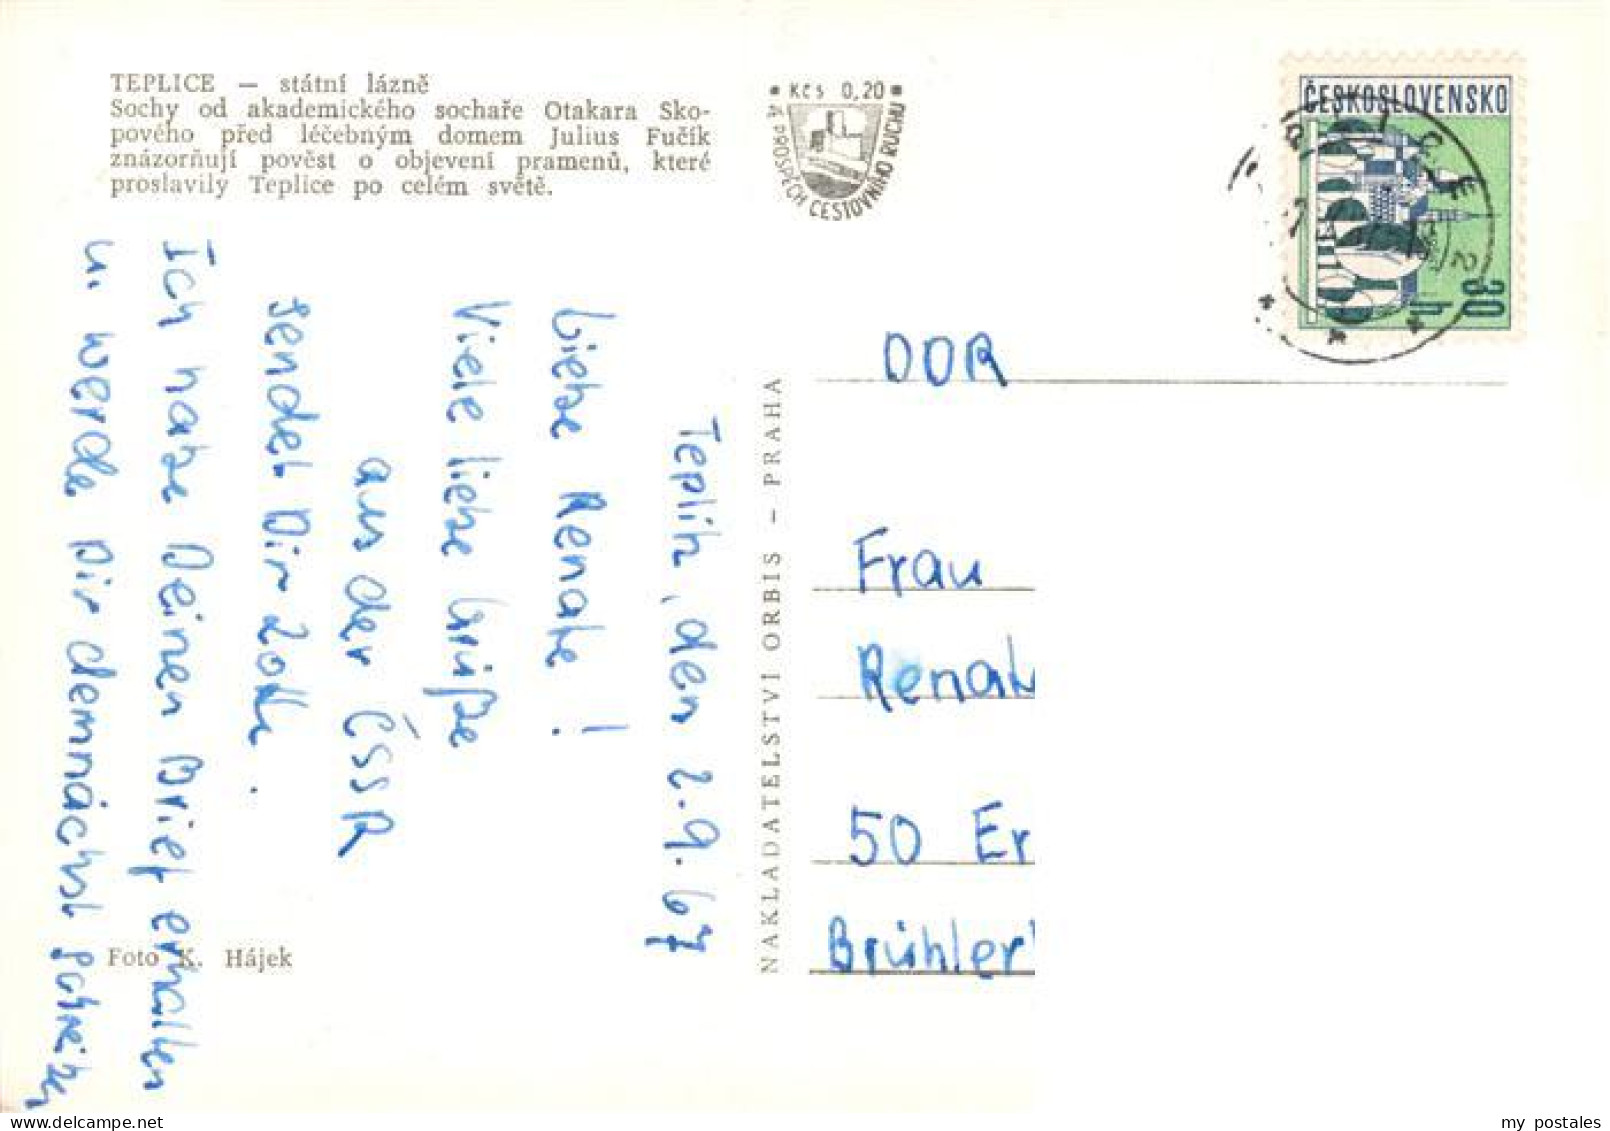 TEPLICE — státní lázně
Sochy od akademického sochaře Otakara Sko-
pového před léčebným domem Julius Fučík
znázorňují pověst o objevení pramenů, které
proslavily Teplice po celém světě.
* Kčs 0,20 *
VE PROSPĚCH CESTOVNÍHO RUCHU
ČESKOSLOVENSKO
30
h
TEPLICE 2
Teplitz, den 2.9.67
Liebe Renate!
Viele liebe Grüße
aus der ČSSR
sendet Dir
Ich habe Deinen Brief erhalten
u. werde Dir demnächst schreiben
Foto K. Hájek
NAKLADATELSTVÍ ORBIS – PRAHA
DDR
Frau
Renat
50 Er
Brühler
my postales